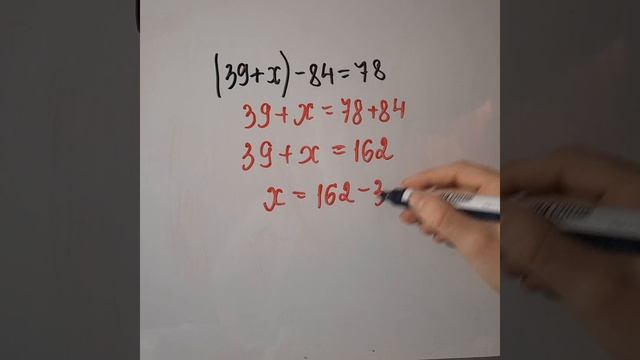 (39+x)-84=78
39+x=78+84
39+x=162
x=162-3